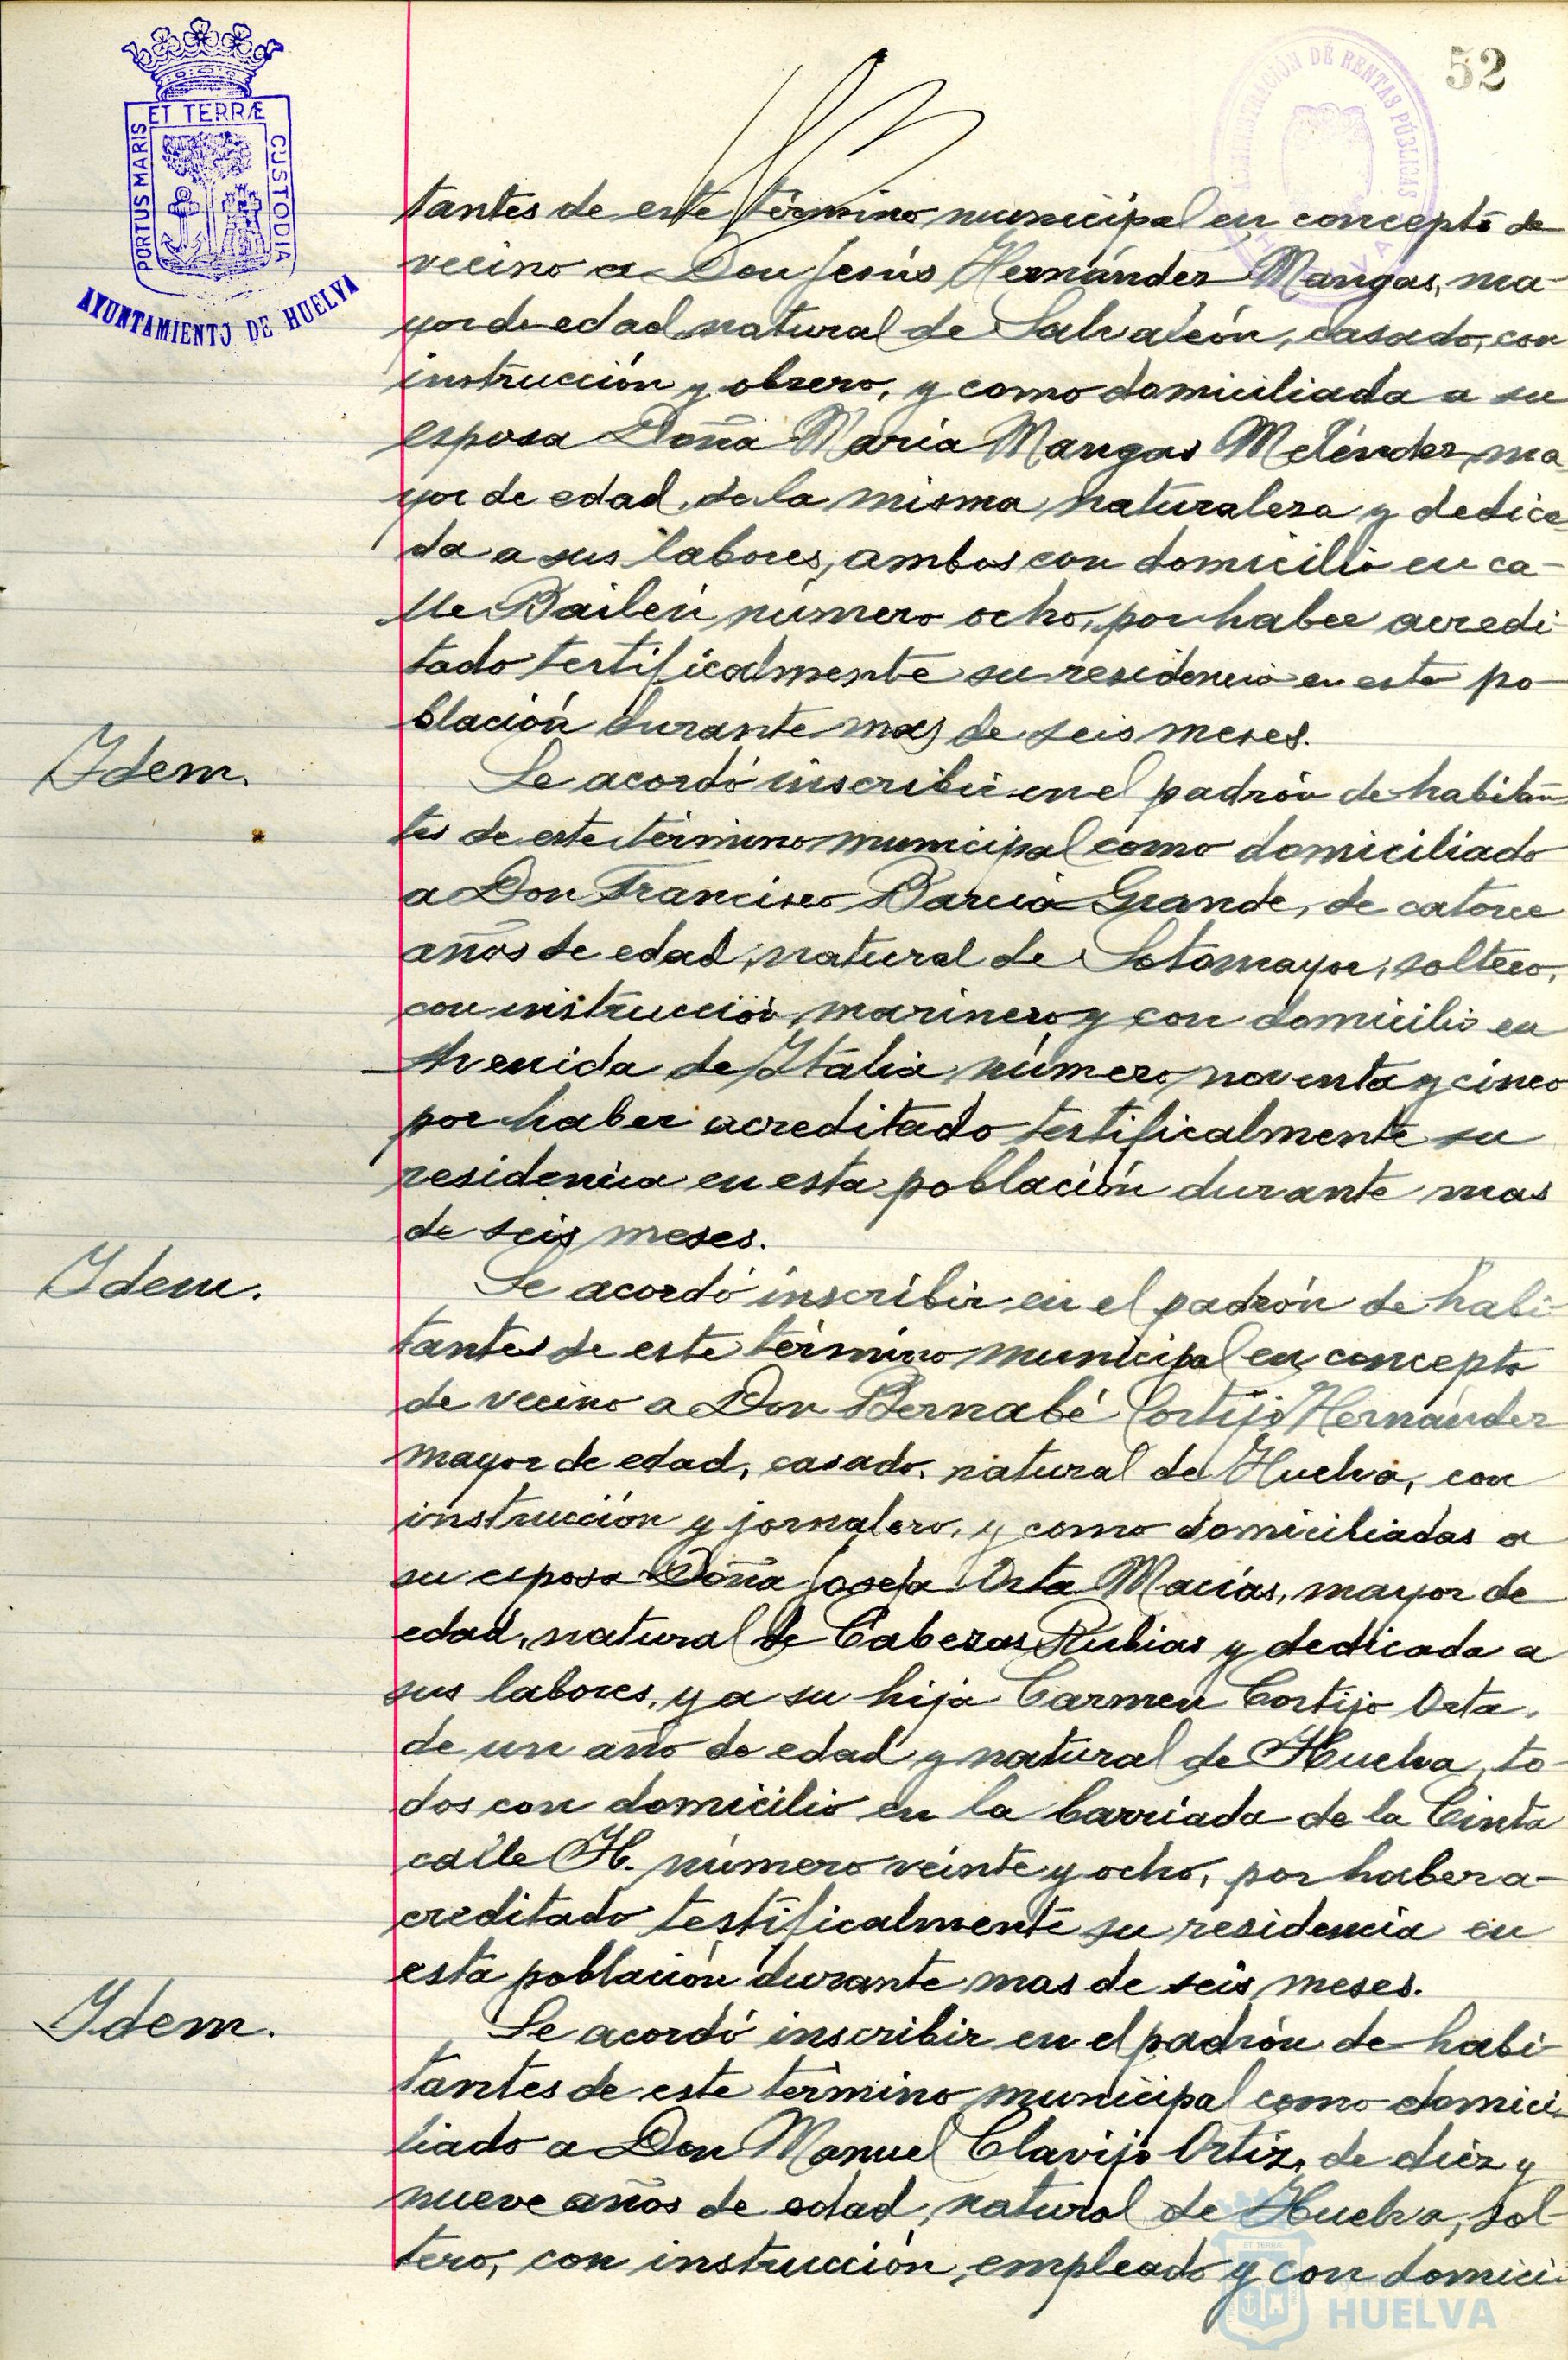 52
ET TERRÆ
PORTUS MARIS
CUSTODIA
AYUNTAMIENTO DE HUELVA
ADMINISTRACIÓN DE RENTAS PÚBLICAS
tantes de este término municipal en concepto de
vecino a Don Jesús Hernández Mangas, ma-
yor de edad natural de Salvaleón, casado, con
instrucción y obrero, y como domiciliada a su
esposa Doña María Mangas Meléndez, ma
yor de edad, de la misma naturaleza y dedica
da a sus labores, ambos con domicilio en ca-
lle Bailén número ocho, por haber acredi-
tado testificalmente su residencia en esta po-
blación durante mas de seis meses.
Idem.
Se acordó inscribir en el padrón de habitan
tes de este término municipal como domiciliado
a Don Francisco Barcia Grande, de catorce
años de edad, natural de Sotomayor, soltero,
con instrucción, marinero y con domicilio en
Avenida de Italia número noventa y cinco
por haber acreditado testificalmente su
residencia en esta población durante mas
de seis meses.
Idem.
Se acordó inscribir en el padrón de habi-
tantes de este término municipal en concepto
de vecino a Don Bernabé Cortijo Hernández
mayor de edad, casado, natural de Huelva, con
instrucción y jornalero, y como domiciliadas a
su esposa Doña Josefa Orta Macías, mayor de
edad, natural de Cabezas Rubias y dedicada a
sus labores, y a su hija Carmen Cortijo Orta,
de un año de edad y natural de Huelva, to-
dos con domicilio en la barriada de la Cinta
calle H. número veinte y ocho, por haber a-
creditado testificalmente su residencia en
esta población durante mas de seis meses.
Idem.
Se acordó inscribir en el padrón de habi-
tantes de este término municipal como domici-
liado a Don Manuel Clavijo Ortiz, de diez y
nueve años de edad, natural de Huelva, sol-
tero, con instrucción, empleado y con domici-
HUELVA